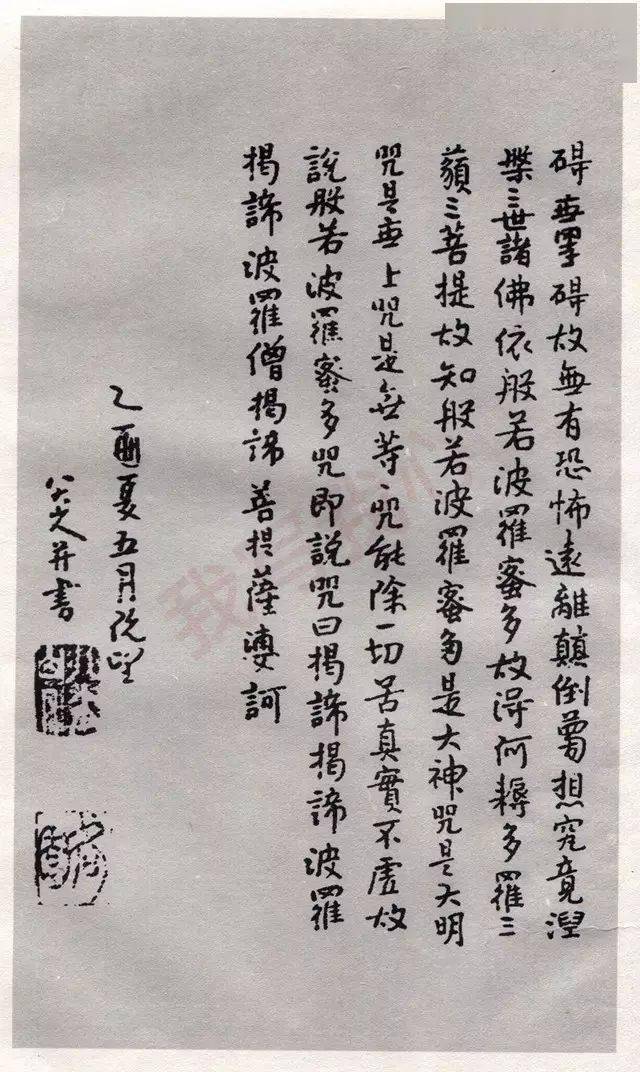 碍無罣碍故無有恐怖遠離顛倒夢想究竟涅
槃三世諸佛依般若波羅蜜多故得阿耨多羅三
藐三菩提故知般若波羅蜜多是大神咒是大明
咒是無上咒是無等〻咒能除一切苦真實不虛故
說般若波羅蜜多咒即說咒曰揭諦揭諦波羅
揭諦波羅僧揭諦菩提薩婆訶
乙酉夏五月既望
八大山人并書